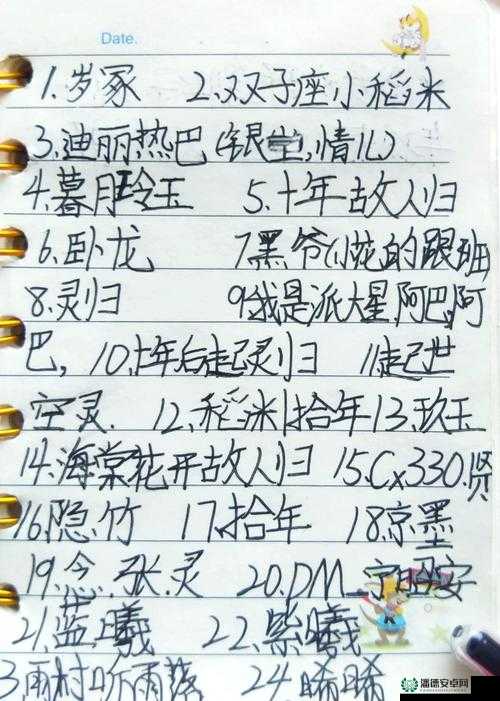 Date.
1.岁冢 2.双子座小稻米
3.迪丽热巴(银堂,情儿)
4.暮月玲玉 5.十年故人归
6.卧龙 7黑爷(花的跟班
8.灵归 9.我是派大星阿巴,阿
巴, 10.十年后起灵归 11.起世
空灵. 12.稻米|拾年13.玖玉
14.海棠花开故人归 15.Cx330.贤
16.隐.竹 17.拾年 18.京墨
19. 张.灵 20.DM_宁 安
21.蓝曦 22.紫曦
3.雨村听雨落 24.晞晞
潘德安卓网